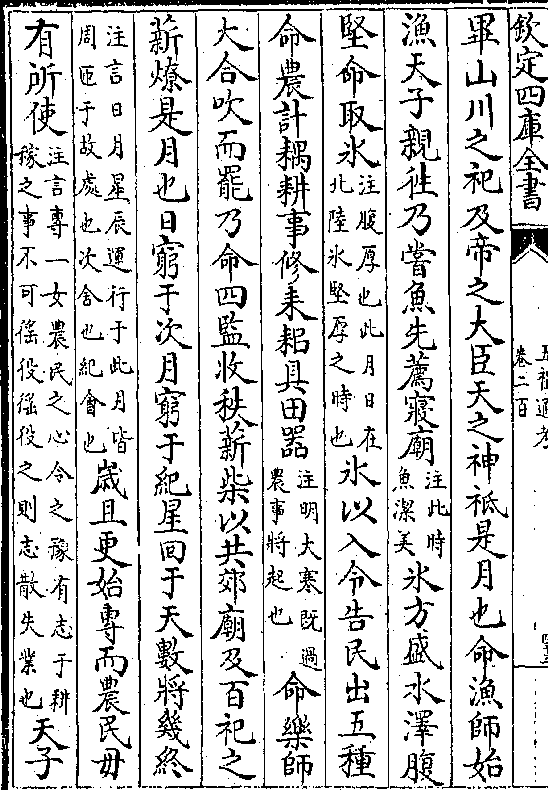 欽定四庫全書
五禮通考
卷二百
畢山川之祀及帝之大臣天之神祗是月也命漁師始
漁天子親徃乃嘗魚先薦寢廟注此時魚潔美氷方盛水澤腹
堅命取氷注腹厚也此月日在北陸氷堅厚之時也氷以入令告民出五種
命農計耦耕事修耒耜具田器注明大寒既過農事將起也命樂師
大合吹而罷乃命四監收秩薪柴以共郊廟及百祀之
薪燎是月也日窮于次月窮于紀星回于天數將幾終
注言日月星辰運行于此月皆周匝于故處也次舍也紀會也歲且更始專而農民毋
有所使注言專一女農民之心令之豫有志于耕稼之事不可徭役徭役之則志散失業也天子